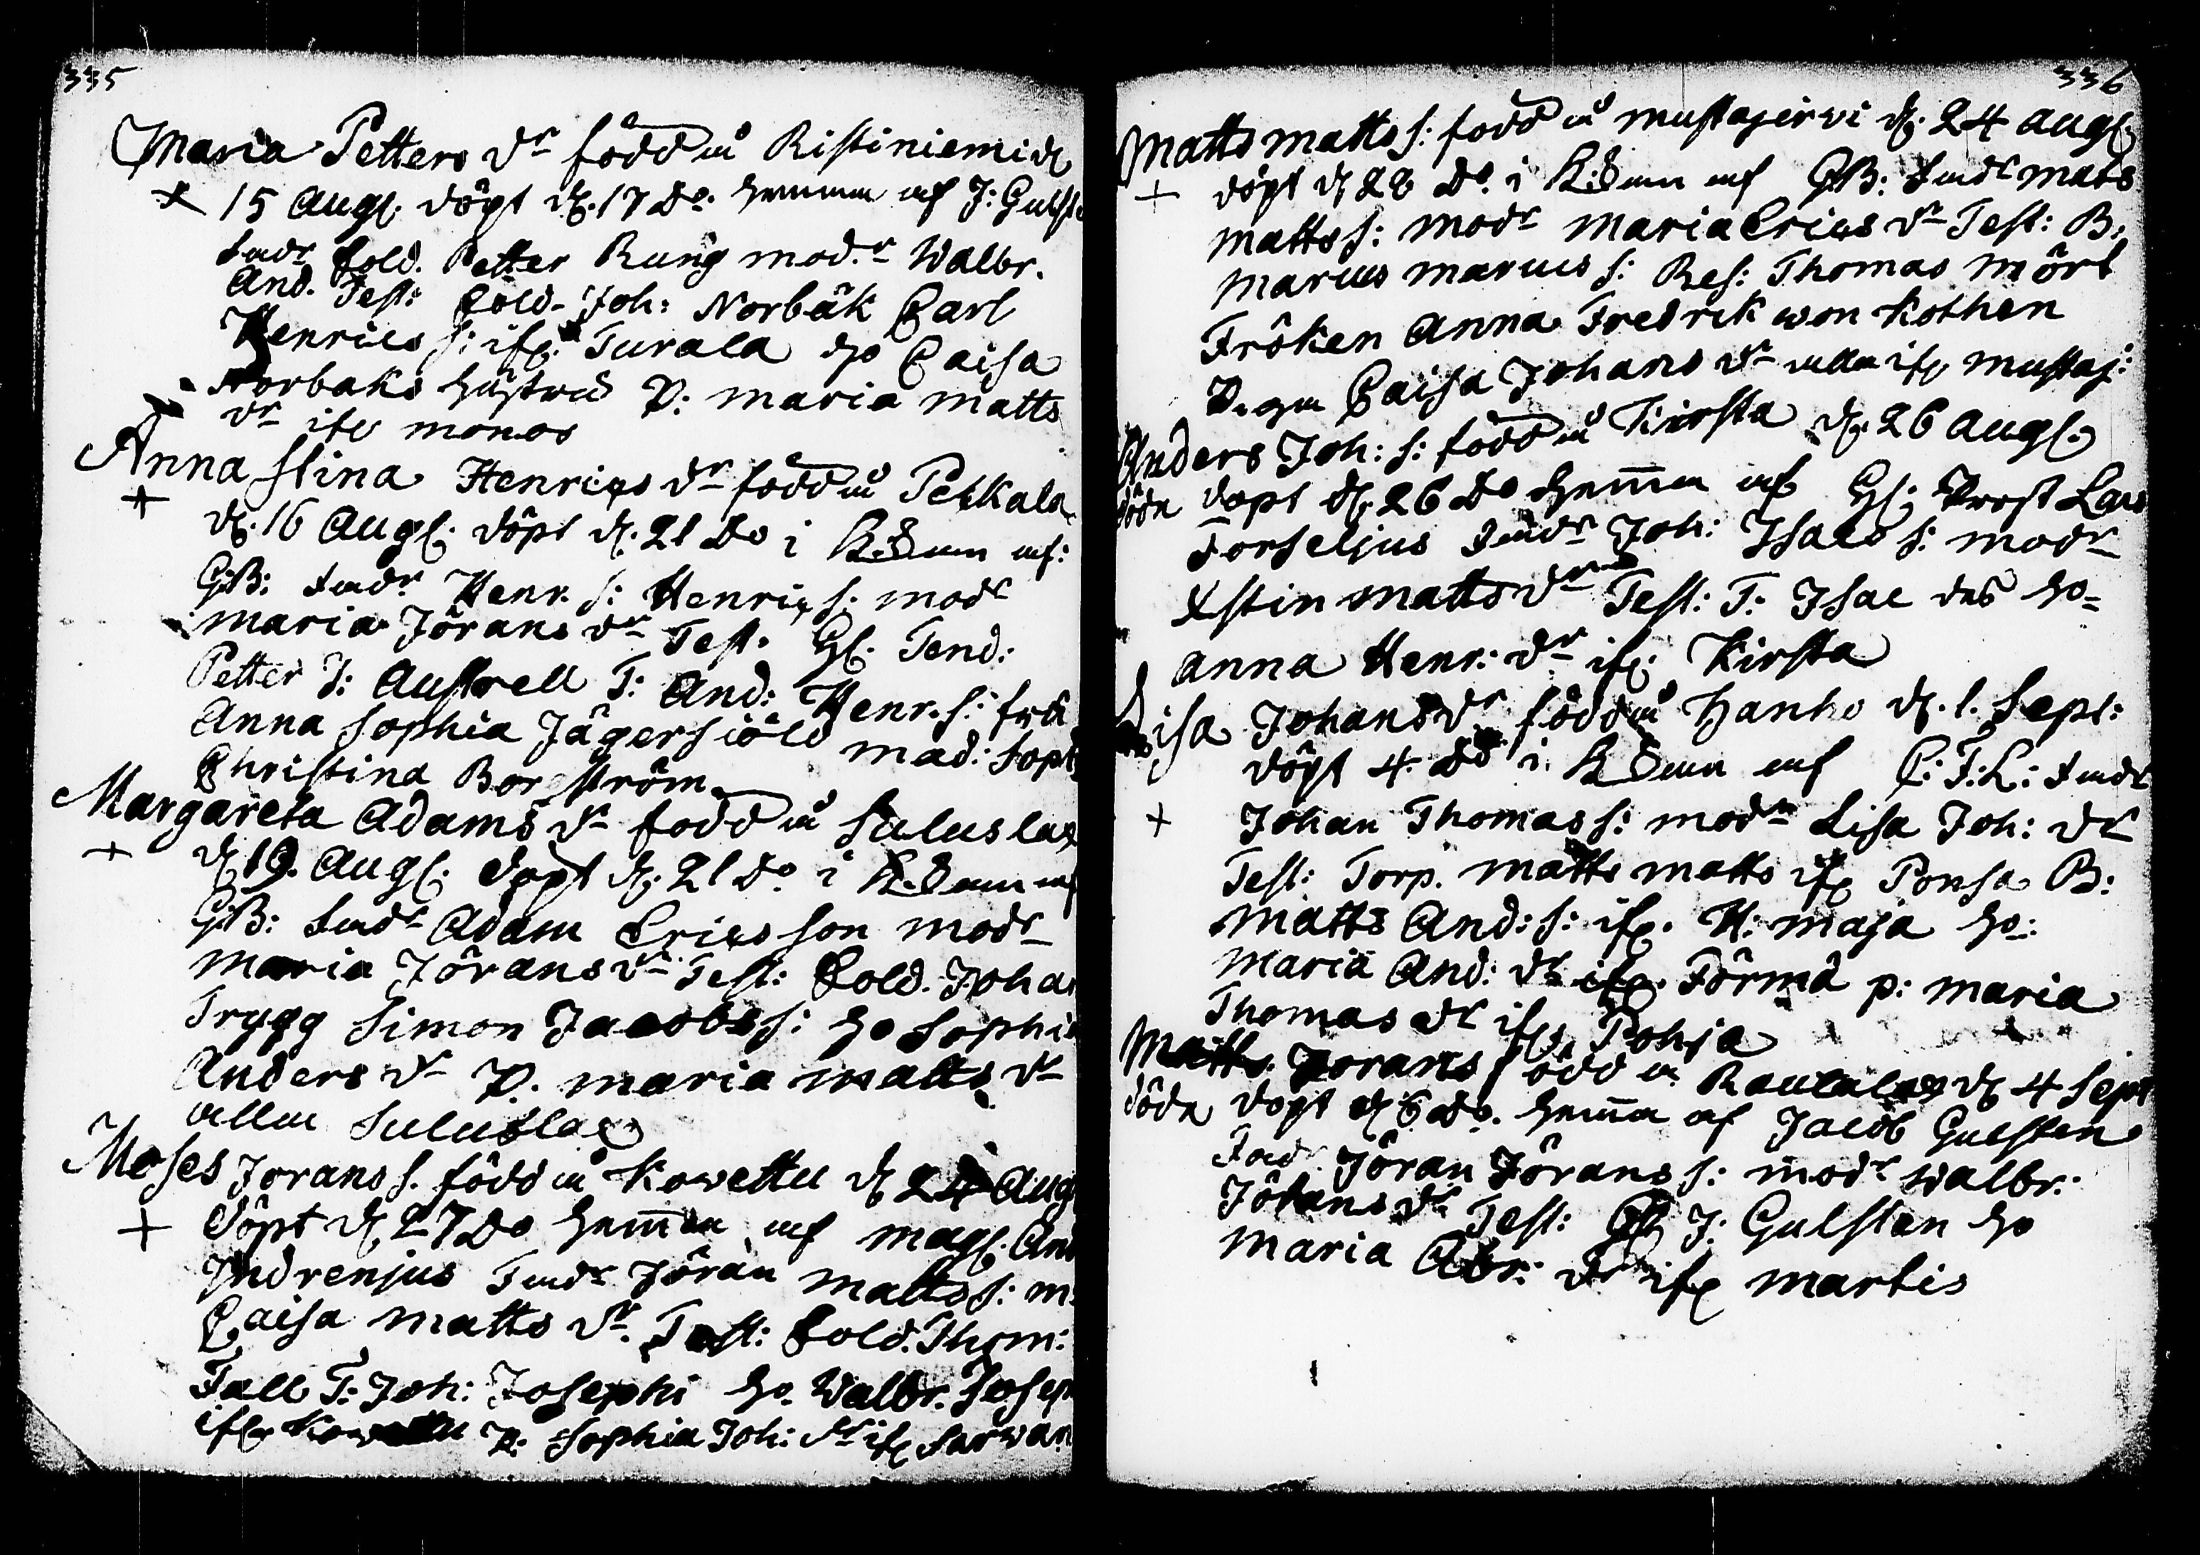 335
Maria Petters dr född i Ristiniemi d
15 Augs. döpt d. 17 Do. hemma af J: Gulst
fadr Sold. Petter Rung modr Walbr.
And. Test: Sold. Joh: Norbäk Carl
Henrics s: ifr. Turala ho Caisa
Norbaks hustru P: maria matts
dr ifr monos
Anna Stina Henrics dr född i Pekkala
d. 16 Augs. döpt d. 21 Do i af:
GB: fadr Henr. s: Henrics s: modr
maria Jörans dr Test. Tend:
Petter J: Austrell T: And: Henr. s: fru
Anna Sophia Jägersiöld mad: Soph
Christina Borgström
Margareta Adams dr född i Suluslax
d 19. Augs. döpt d. 21 Do i af
GB: fadr Adam Ericsson modr
maria Jörans dr Test: Sold. Joha
Trygg Simon Jacobs s: ho Sophia
Anders dr P. maria matts dr
alla Suluslax
Moses Jorans s. född i Kowettu d 24 Augs
döpt d. 27 Do hemma af mags. And
Indrenjus Fadr Jöran matts s: m:
Caisa matts dr. Test: Sold. Thom:
Fall T: Joh: Josephi ho. Walbr. Joseph
ifr Kowettu P: Sophia Joh: dr ifr Sarwan
336
Matts matts s: född i mustajerwi d. 24 Augs.
döpt d 28 Do. i af GB: fadr mats
matts s: modr maria Erics dr Test: B:
marcus marcus s: Res: Thomas mört
Fröken Anna Fredrik von Kothen
Pigan Caisa Johans dr alla ifr mustaj:
Anders Joh: s: född i Kirsta d. 26 Augs.
döda döpt d. 26 Do hemma af Prost Lars
Forseljus Fadr Joh: Isacs s: modr
Xstin matts dr Test: T: Isac ds ho
Anna Henr: dr ifr. Kirsta
Lisa Johans dr född i Hanho d. 1. Sept:
döpt 4. Do i af C: F: L: fadr
Johan Thomas s: modr Lisa Joh: dr
Test: Torp. matts matts ifr Ponsa B:
matts And: s: ifr. H: maja ho:
maria And: dr ifr. Förmå p: maria
Thomas dr ifr Pohja
Matts Jorans s född i d 4 Sept
döda döpt d 6 Do. hemma af Jacob Gulsten
Fadr Jöran Jörans s: modr Walbr:
Johans dr Test: J: Gulsten ho
maria Abr: dr ifr martis